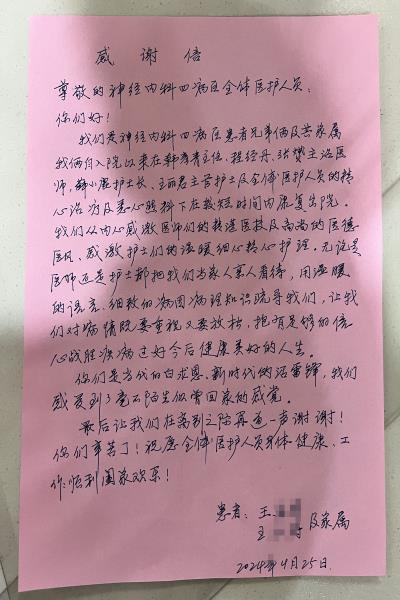 感谢信
尊敬的神经内科四病区全体医护人员：
你们好！
我们是神经内科四病区患者兄弟俩及其家属
我俩自入院以来在韩青主任、程经丹、张赞主治医
师，韩小庭护士长、王丽君主管护士及全体医护人员的精
心治疗及悉心照料下在较短时间内康复出院。
我们从内心感激医师们的精湛医技及高尚的医德
医风，感激护士们的温暖细心精心护理。无论是
医师还是护士都把我们当家人亲人看待，用温暖
的语言、细致的病因病理知识疏导我们，让我
们对病情既要重视又要放松，抱有足够的信
心战胜疾病过好今后健康美好的人生。
你们是当代的白求恩、新时代的活雷锋，我们
感受到了毫不陌生似曾回家的感觉。
最后让我们在离别之际再道一声谢谢！
你们辛苦了！祝愿全体医护人员身体健康、工
作顺利阖家欢乐！
患者：王
王 及家属
2024年4月25日